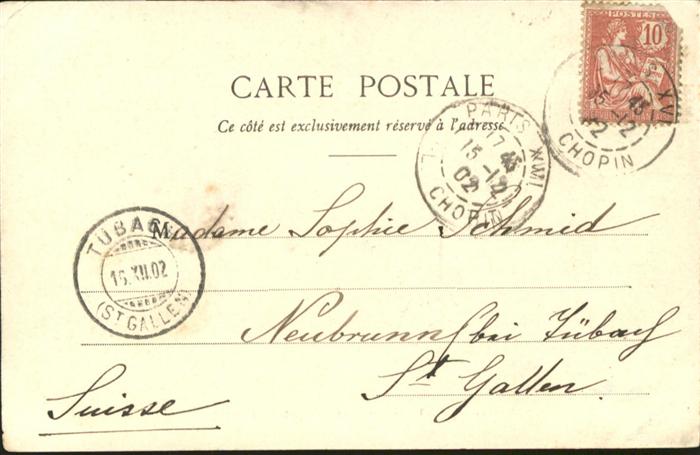 POSTES
10
RÉPUBLIQUE FRANÇAISE
CARTE POSTALE
Ce côté est exclusivement réservé à l'adresse
PARIS XVI
17 45
15 -12
02
CHOPIN
XVI
45
15 -12
02
CHOPIN
TUBACH
16.XII.02
(ST GALLEN)
Madame Sophie Schmid
Neubrunn (bei Tübach
St Gallen
Suisse